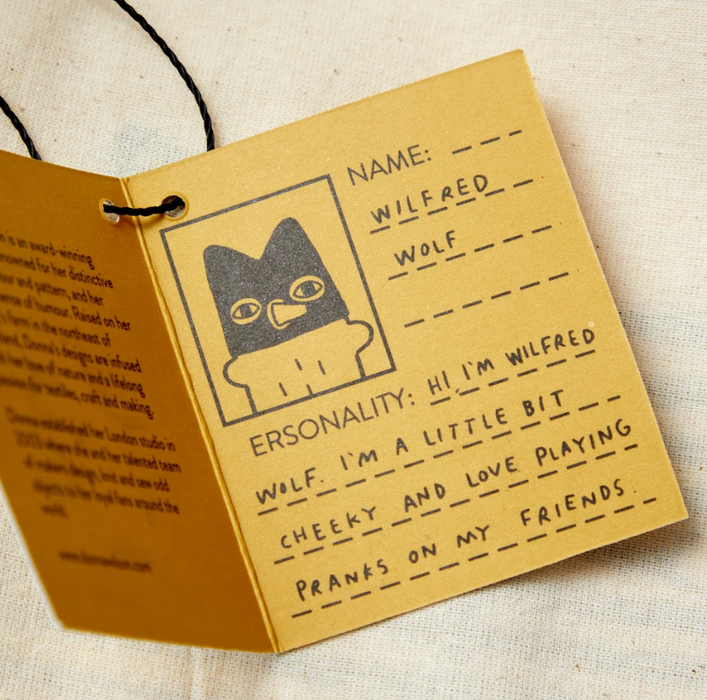 n is an award-winning
enowned for her distinctive
our and pattern, and her
ense of humour. Raised on her
's farm in the northeast of
land, Donna's designs are infused
h her love of nature and a lifelong
passion for textiles, craft and making.
Donna established her London studio in
2003 where she and her talented team
of makers design, knit and sew odd
objects to her loyal fans around the
world.
www.donnawilson.com
NAME:
WILFRED
WOLF
ERSONALITY: HI I'M WILFRED
WOLF. I'M A LITTLE BIT
CHEEKY AND LOVE PLAYING
PRANKS ON MY FRIENDS.